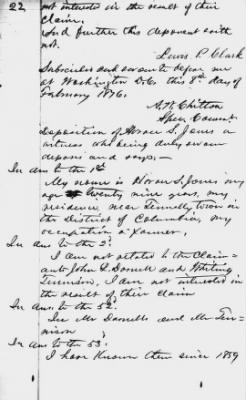 22 not interested in the result of their
claim,
And further this deponent saith
not.
Lewis P. Clark
Subscribed and sworn to before me
at Washington D.C. this 8th day of
February 1876.
Chitton
Spec Commr
Deposition of Horace S. Jones a
witness who being duly sworn
deposes and says—
In ans to the 1st
My name is Horace S. Jones my
age twenty nine years, my
residence near Tennallytown in
the District of Columbia, my
occupation a farmer,
In ans to the 2d
I am not related to the Claim-
ants John J. Darnell and
Tennison, I am not interested in
the result of their claim
In ans. to the 52d
Mr Darnells and Mr Ten-
nison
In ans to the 53d
I have known them since 1859